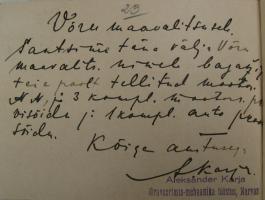 23
Võru maavalitsusele.
Saatsime täna välja Võru
maavalits. nimele bagaaž
teie poolt tellitud mootor.
N.N, ja 3 kompl. mootor.
sõidu ja 1 kompl. auto
sõidu.
Kõige austusega
A Karja.
Aleksander Karja
Graveerimis-mehaanika tööstus, Narvas